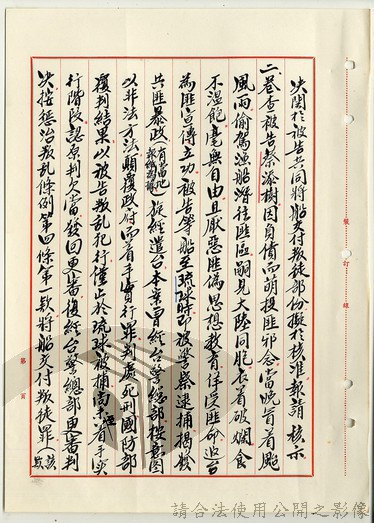 決關於被告共同將船交付叛徒部份擬於核准報請 核示
二、卷查被告蔡添樹因負債而萌投匪邪念當晚冒着颱
風雨偷駕漁船潛往匪區嗣見大陸同胞衣着破爛食
不溫飽毫無自由且厭惡匪偽思想教育佯受匪命返台
為匪宣傳立功被告等船至琉球時即被警察逮捕揭發
共匪暴政 旋經遣台本案曾經台警總部按意圖
(有當地報紙為據)
以非法方法顛覆政府而着手實行罪判處死刑國防部
覆判結果以被告叛亂犯行僅止於琉球被捕尚未至着手實
行階段認原判欠當發回更審後經台警總部更審判
決按懲治叛亂條例第四條第一款將船交付叛徒罪
裝訂線
第 頁
請合法使用公開之影像